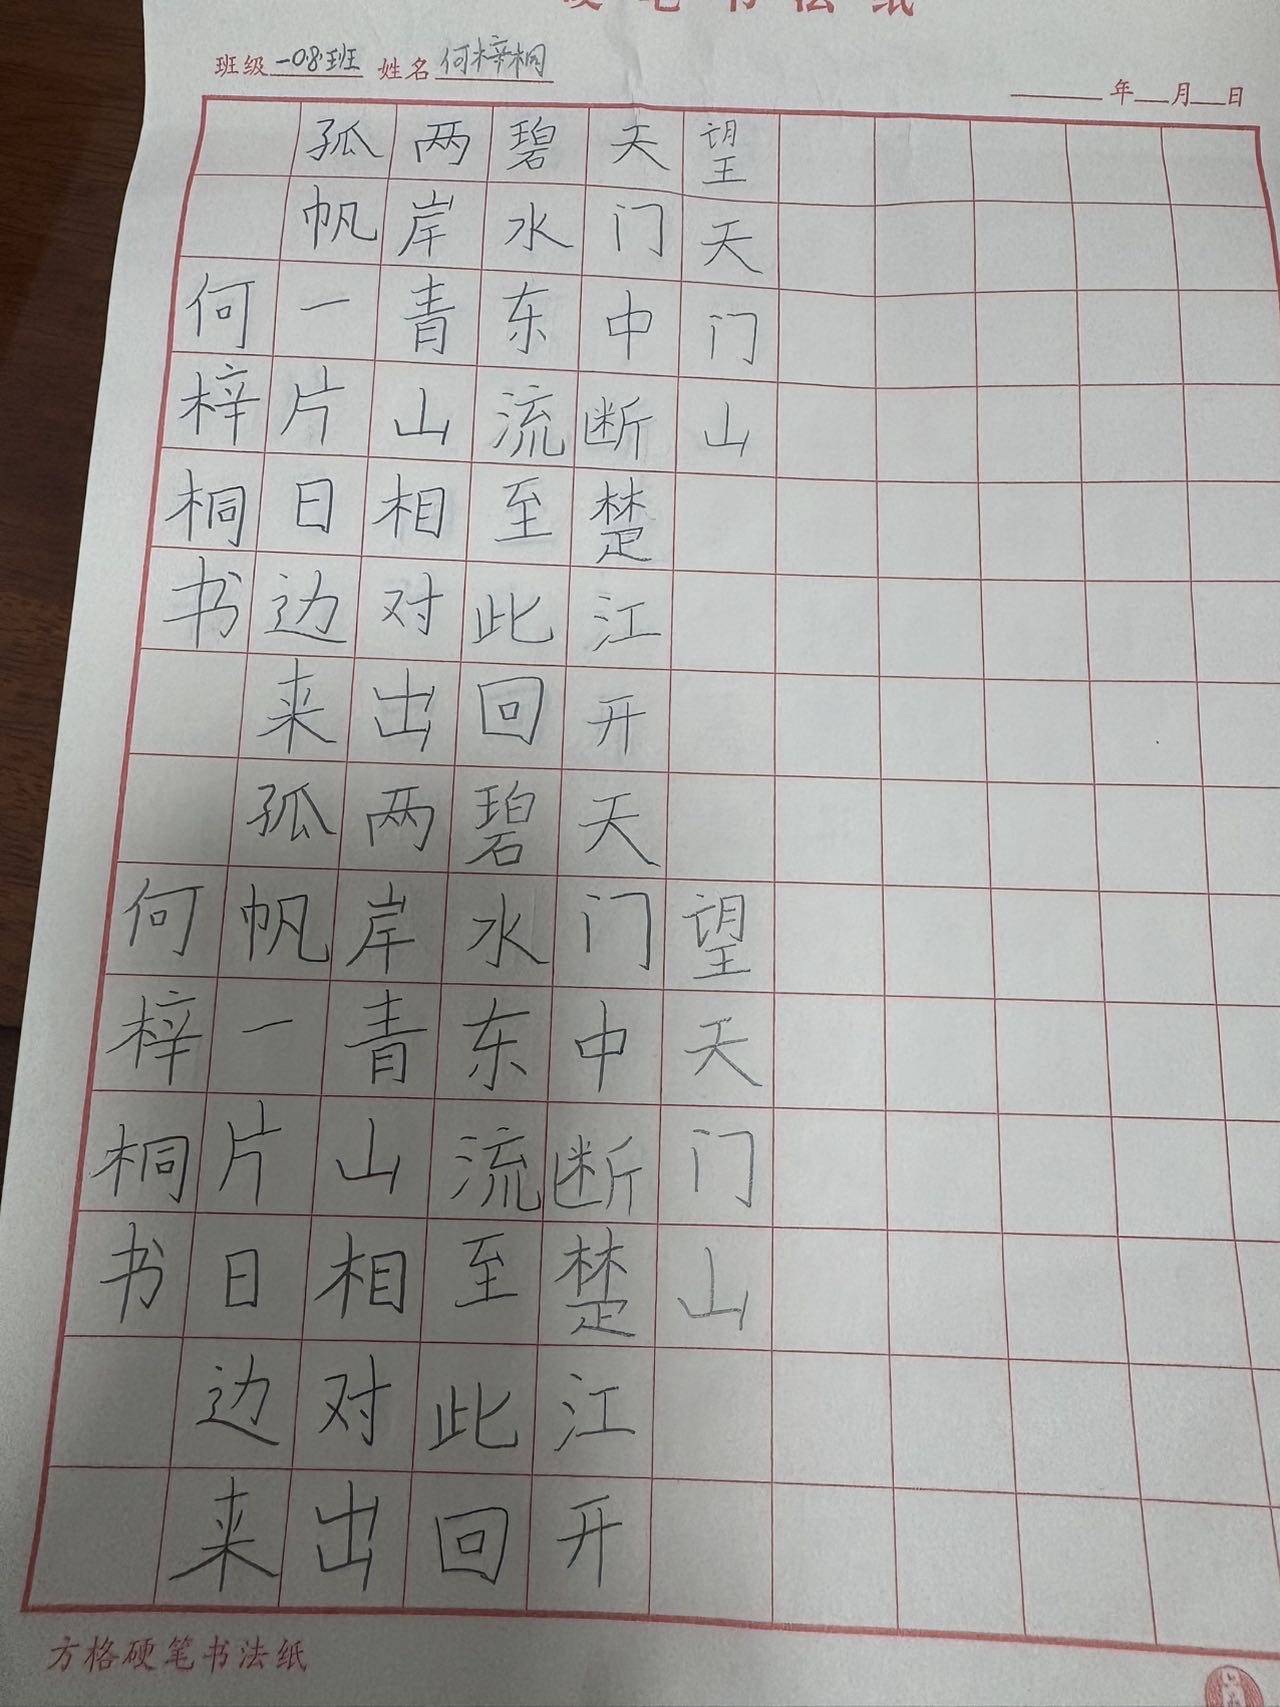 硬笔书法纸
班级 一08班 姓名 何梓桐
年 月 日
望天门山
天门中断楚江开
碧水东流至此回
两岸青山相对出
孤帆一片日边来
何梓桐书
望天门山
天门中断楚江开
碧水东流至此回
两岸青山相对出
孤帆一片日边来
何梓桐书
方格硬笔书法纸